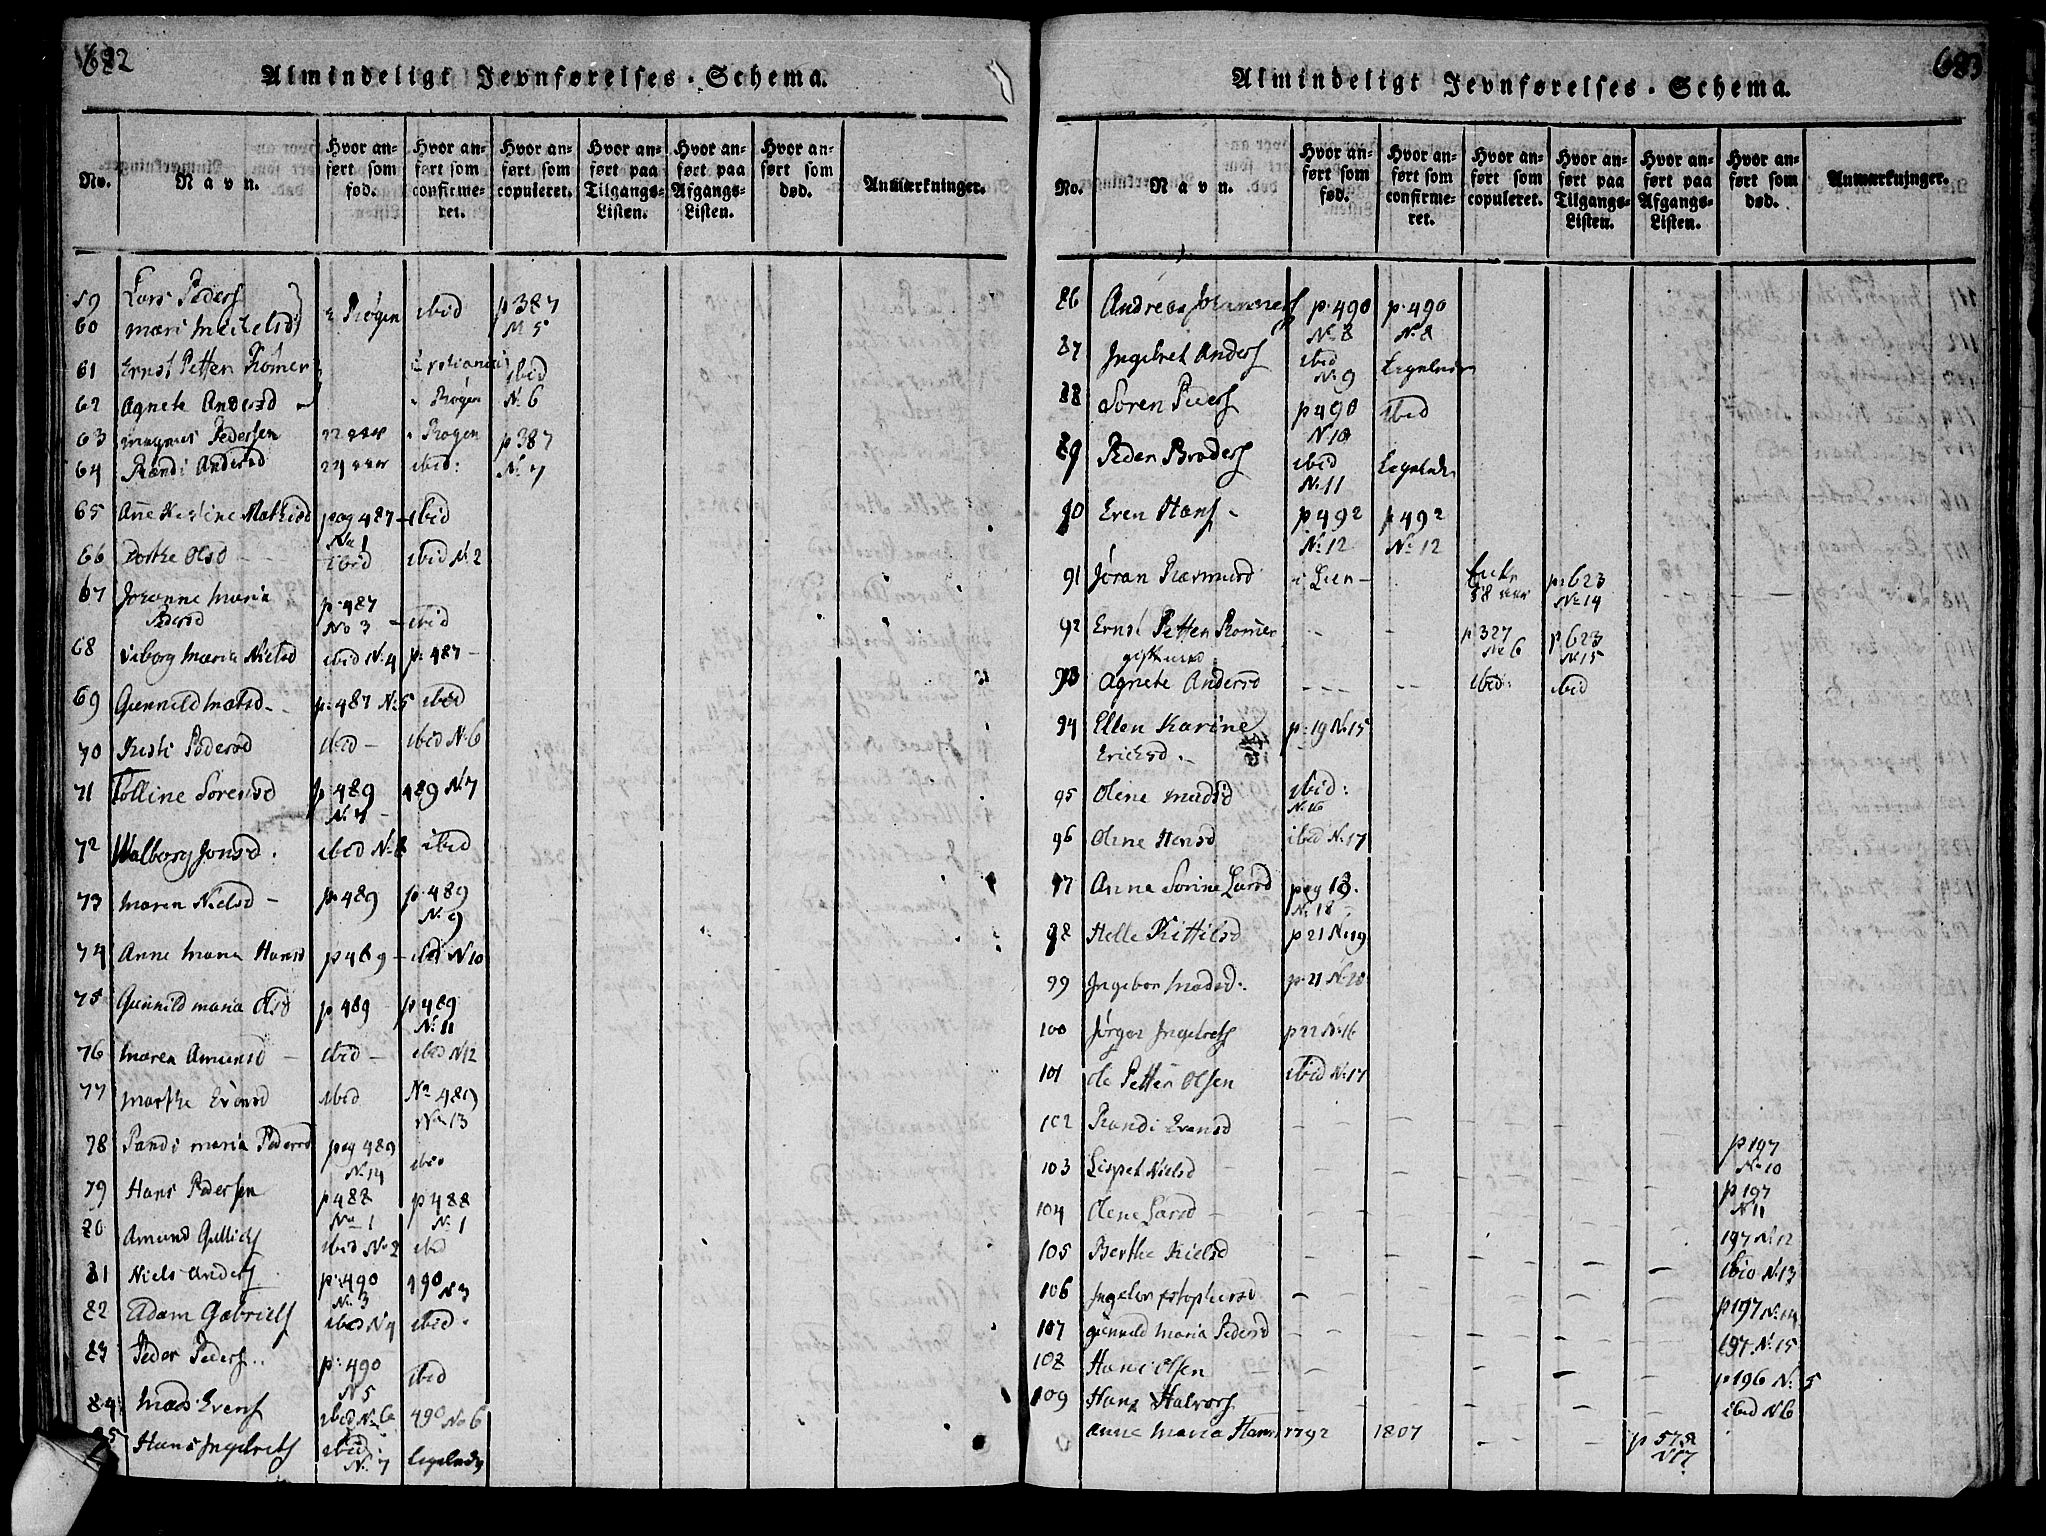 682
Almindeligt Jevnførelses-Schema.
No. Navn. Hvor anført som fød. Hvor anført som confirmeret. Hvor anført som copuleret. Hvor anført paa Tilgangs-Listen. Hvor anført paa Afgangs-Listen. Hvor anført som død. Anmærkninger.
59 Lars Peders
60 Mari Michelsd i Røgen ibid p 387 N 5
61 Ernst Petter Rømer ibid
62 Agnete Andersd i Røgen N. 6
63 Magnus Pedersen 22 aar i Røgen p 387
64 Randi Andersd 24 aar ibid: N. 7
65 Ane Kirstine Mathisd pag 487 ibid
No 1
66 Dorthe Olsd ibid ibid N. 2
67 Johanne Maria p. 487
Pedersd No 3 ibid
68 Viborg Maria Nielsd ibid N. 4 p. 487
69 Gunnild Matsd p. 487 N. 5 ibid
70 Kirsti Pedersd ibid ibid N. 6
71 Tolline Sørensd p 489 489 N. 7
N. 7
72 Walborg Jonsd. ibid N. 8 ibid
73 Maren Nielsd p. 489 p. 489
N. 9
74 Anne Maria Hansd p 489 ibid N 10
75 Gunnild Maria Olsd p 489 p 489
N. 11
76 Maren Amunsd ibid ibid N 12
77 Marthe Evensd ibid No 489
No 13
78 Randi Maria Pedersd pag 489 ibid
N. 14
79 Hans Pedersen p 488 p 488
No 1 N. 1
80 Amund Gullichs ibid No 2 ibid
81 Niels Anders p. 490 490 N 3
No. 3
82 Adam Gabriels ibid N 4 ibid.
83 Peder Peders p. 490 ibid
N 5
84 Mads Evens ibid No 6 490 No 6
85 Hans Ingebrets ibid: ligeledes
N. 7
683
Almindeligt Jevnførelses-Schema.
No. Navn. Hvor anført som fød. Hvor anført som confirmeret. Hvor anført som copuleret. Hvor anført paa Tilgangs-Listen. Hvor anført paa Afgangs-Listen. Hvor anført som død. Anmærkninger.
86 Andreas Johannes p. 490 p. 490
No 8 N. 8
87 Ingebret Anders ibid ligeledes
No 9
88 Søren Peers p 490 ibid
N 10
89 Peder Broders ibid ligeledes
No 11
90 Even Hans p 492 p 492
No 12 No 12
91 Jøran Rasmusd i Lier p. 623
58 aar No 14
92 Ernst Petter Rømer p 327 p 623
gift med No 6 No 15
93 Agnete Andersd ibid: ibid
94 Ellen Karine p. 19 N. 15
Ericksd.
95 Olene Madsd ibid:
No 16
96 Olene Hansd ibid N. 17
97 Anne Sorine Larsd pag 19.
No 18
98 Helle Kittilsd p 21 No 19
99 Ingebor Madsd. p. 21 N. 20
100 Jørgen Ingebrets p 22 No 16
101 Ole Petter Olsen ibid N. 17
102 Randi Evensd p 197
No 10
103 Lispet Nielsd p 197
N 11
104 Olene Larsd 197 No 12
105 Berthe Kielsd ibid N. 13
106 Ingebor p 197 No 14
107 Gunnild Maria Pedersd 197 N. 15
108 Hans Olsen p 196 N. 5
109 Hans Halvors ibid N 6
Anne Maria Hans 1792 1807 p 578
N 7